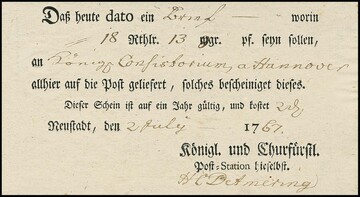 Daß heute dato ein Brief — worin
18 Rthlr. 13 ggr. pf. seyn sollen,
an Königl Consistorium, a Hannover
allhier auf die Post geliefert, solches bescheiniget dieses.
Dieser Schein ist auf ein Jahr gültig, und kostet
Neustadt, den 2 July 1767.
Königl. und Churfürstl.
Post-Station hieselbst.
HC Detmering